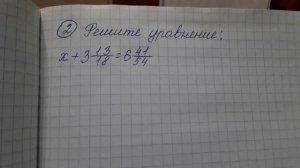 ② Решите уравнение:
x + 3 13/18 = 6 41/54